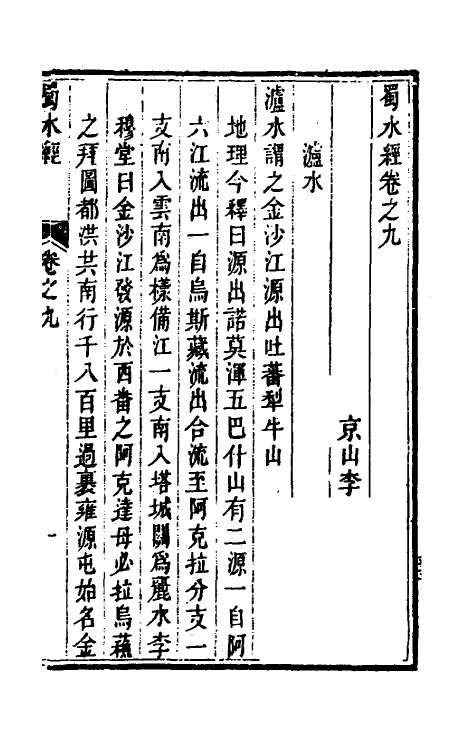 蜀水經卷之九
京山李
瀘水
瀘水謂之金沙江源出吐蕃犁牛山
地理今釋曰源出諾莫渾五巴什山有二源一自阿
六江流出一自烏斯藏流出合流至阿克拉分支一
支南入雲南爲樣備江一支南入塔城關爲麗水李
穆堂曰金沙江發源於西番之阿克達母必拉烏蘇
之拜圖都洪共南行千八百里過裹雍源屯始名金
蜀水經 卷之九